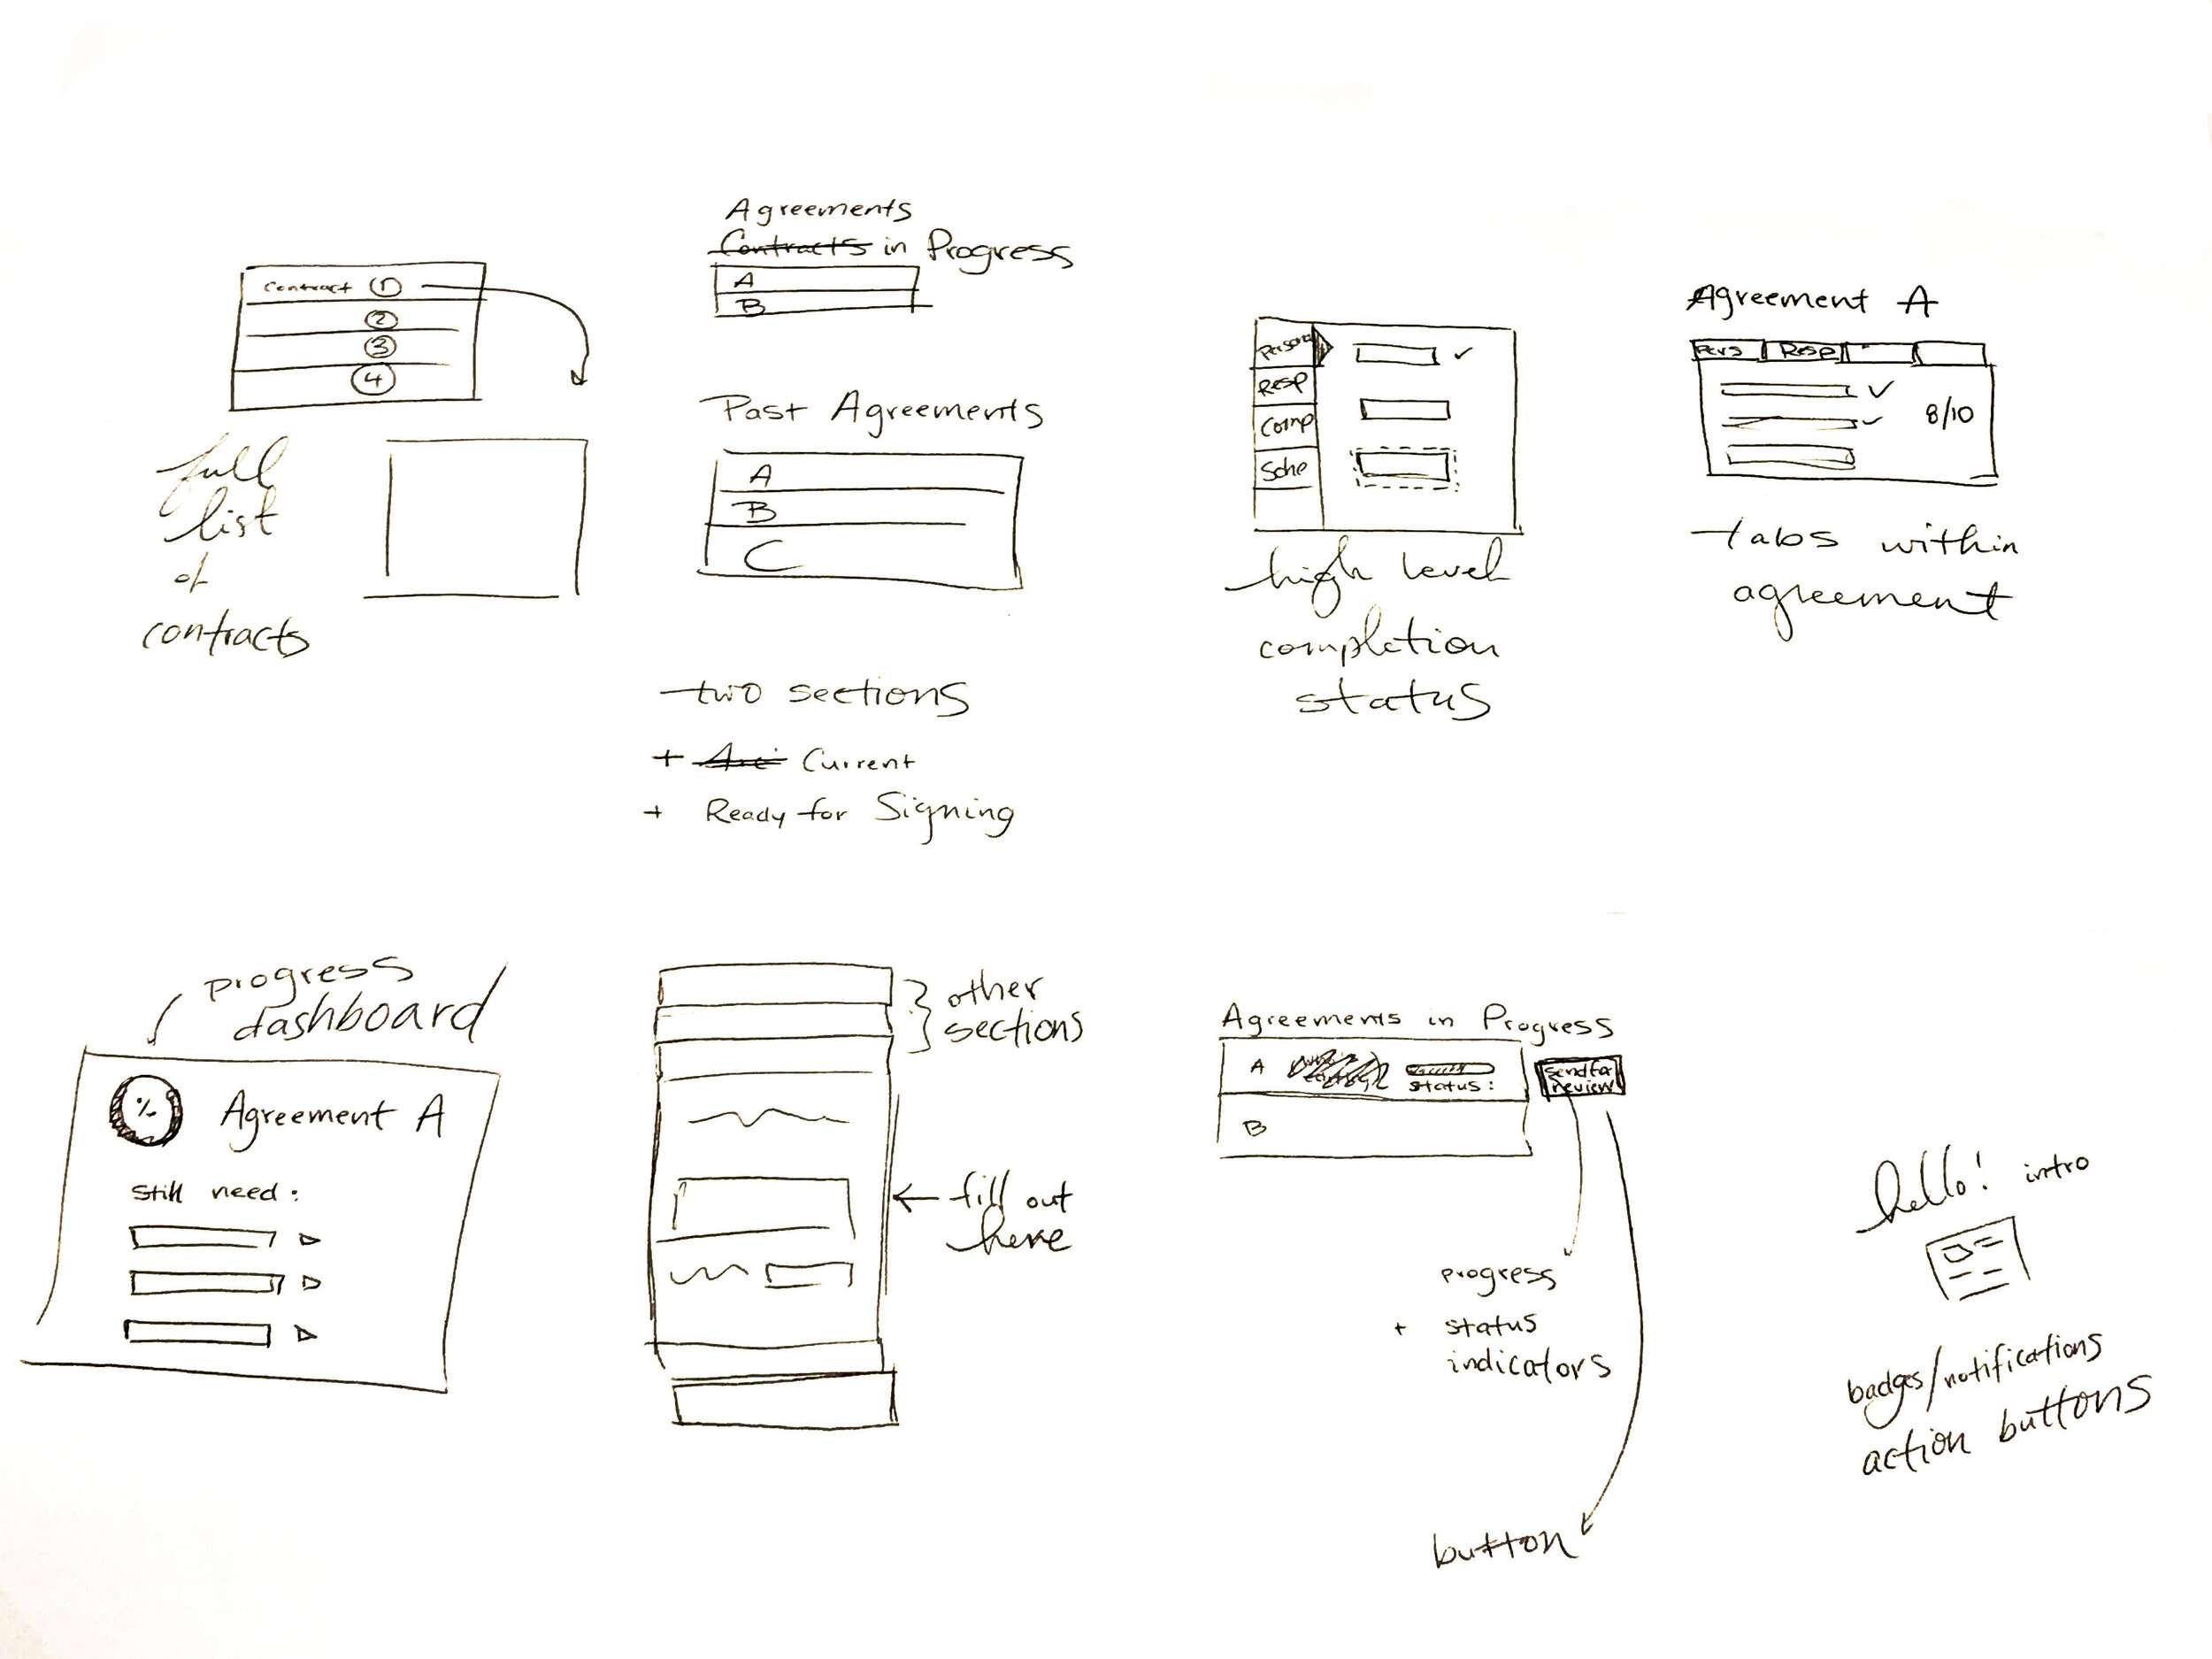 Contract 1
2
3
4
full
list
of
contracts
Agreements
Contracts in Progress
A
B
Past Agreements
A
B
C
two sections
+ Current
+ Ready for Signing
Persona
Resp
Comp
Sche
high level
completion
status
Agreement A
Pers Resp
8/10
tabs within
agreement
progress
dashboard
% Agreement A
Still need:
other
sections
fill out
here
Agreements in Progress
A status:
send for
review
B
progress
+ status
indicators
button
hello! intro
badges/notifications
action buttons